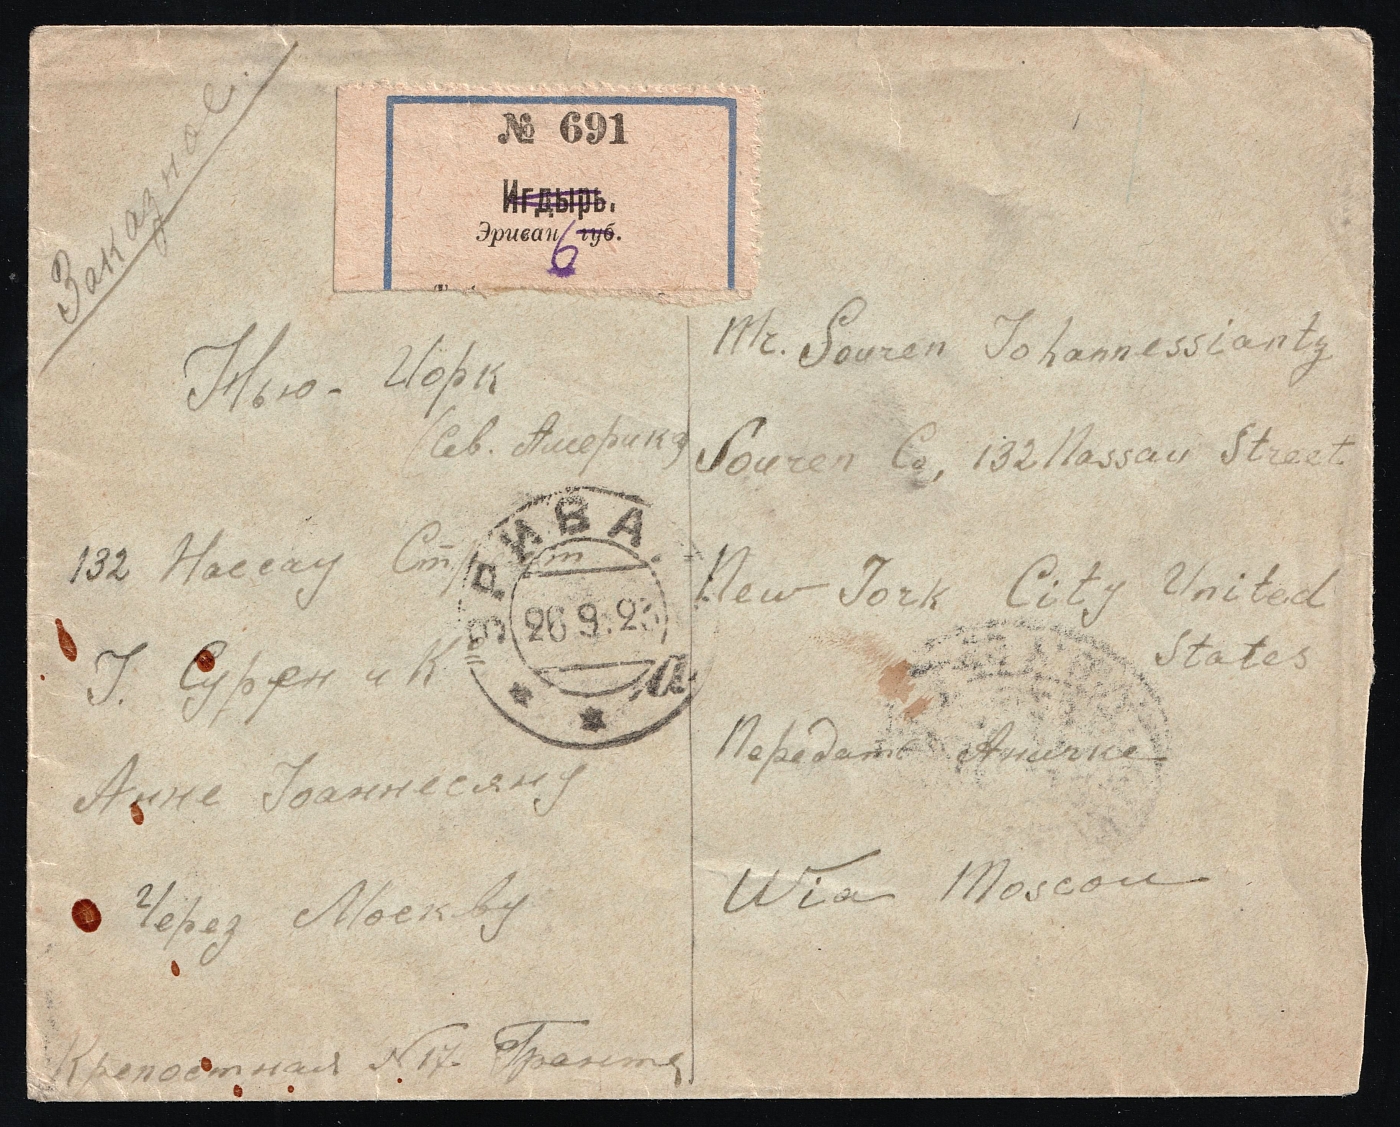 Заказное.
№ 691
Игдырь.
Эриван губ.
6
Нью-Иорк
(Сев. Америка
132 Нассау
Г. Сурен и К
Анне Іоаннесянц
Через Москву
Крепостная N 17.
ЭРИВА
26.9.23
а
Mr. Souren Johannessiantz
Souren Co, 132 Nassau Street
New Jork City United
States
Передать Аничке
Wia Moscou